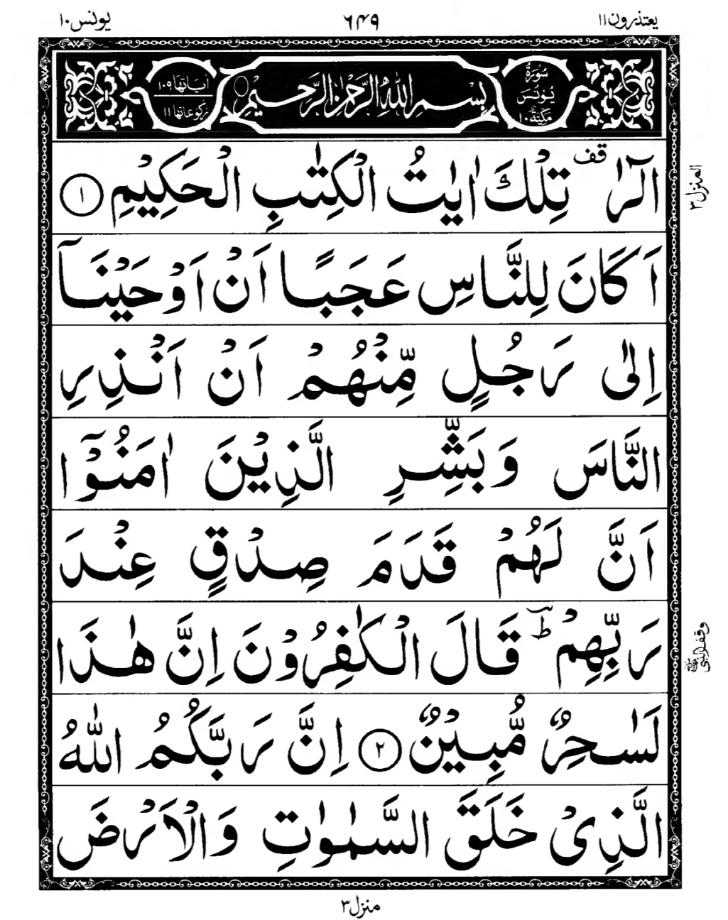 يعتذرون١١ ٦٤٩ يونس١٠
سُوْرَةُ يُوْنُسَ مَكِّيَّةٌ ١٠ بِسْمِ اللهِ الرَّحْمٰنِ الرَّحِيْمِ اٰيَاتُهَا ١٠٩ رُكُوْعَاتُهَا ١١
الٓرٰ ۣقف تِلْكَ اٰيٰتُ الْكِتٰبِ الْحَكِيْمِ ۝١
المنزل ٣
اَكَانَ لِلنَّاسِ عَجَبًا اَنْ اَوْحَيْنَاۤ
اِلٰى رَجُلٍ مِّنْهُمْ اَنْ اَنْذِرِ
النَّاسَ وَبَشِّرِ الَّذِيْنَ اٰمَنُوْۤا
اَنَّ لَهُمْ قَدَمَ صِدْقٍ عِنْدَ
رَبِّهِمْ ؔؕ قَالَ الْكٰفِرُوْنَ اِنَّ هٰذَا
لَسٰحِرٌ مُّبِيْنٌ ۝٢ اِنَّ رَبَّكُمُ اللّٰهُ
الَّذِىْ خَلَقَ السَّمٰوٰتِ وَالْاَرْضَ
منزل٣